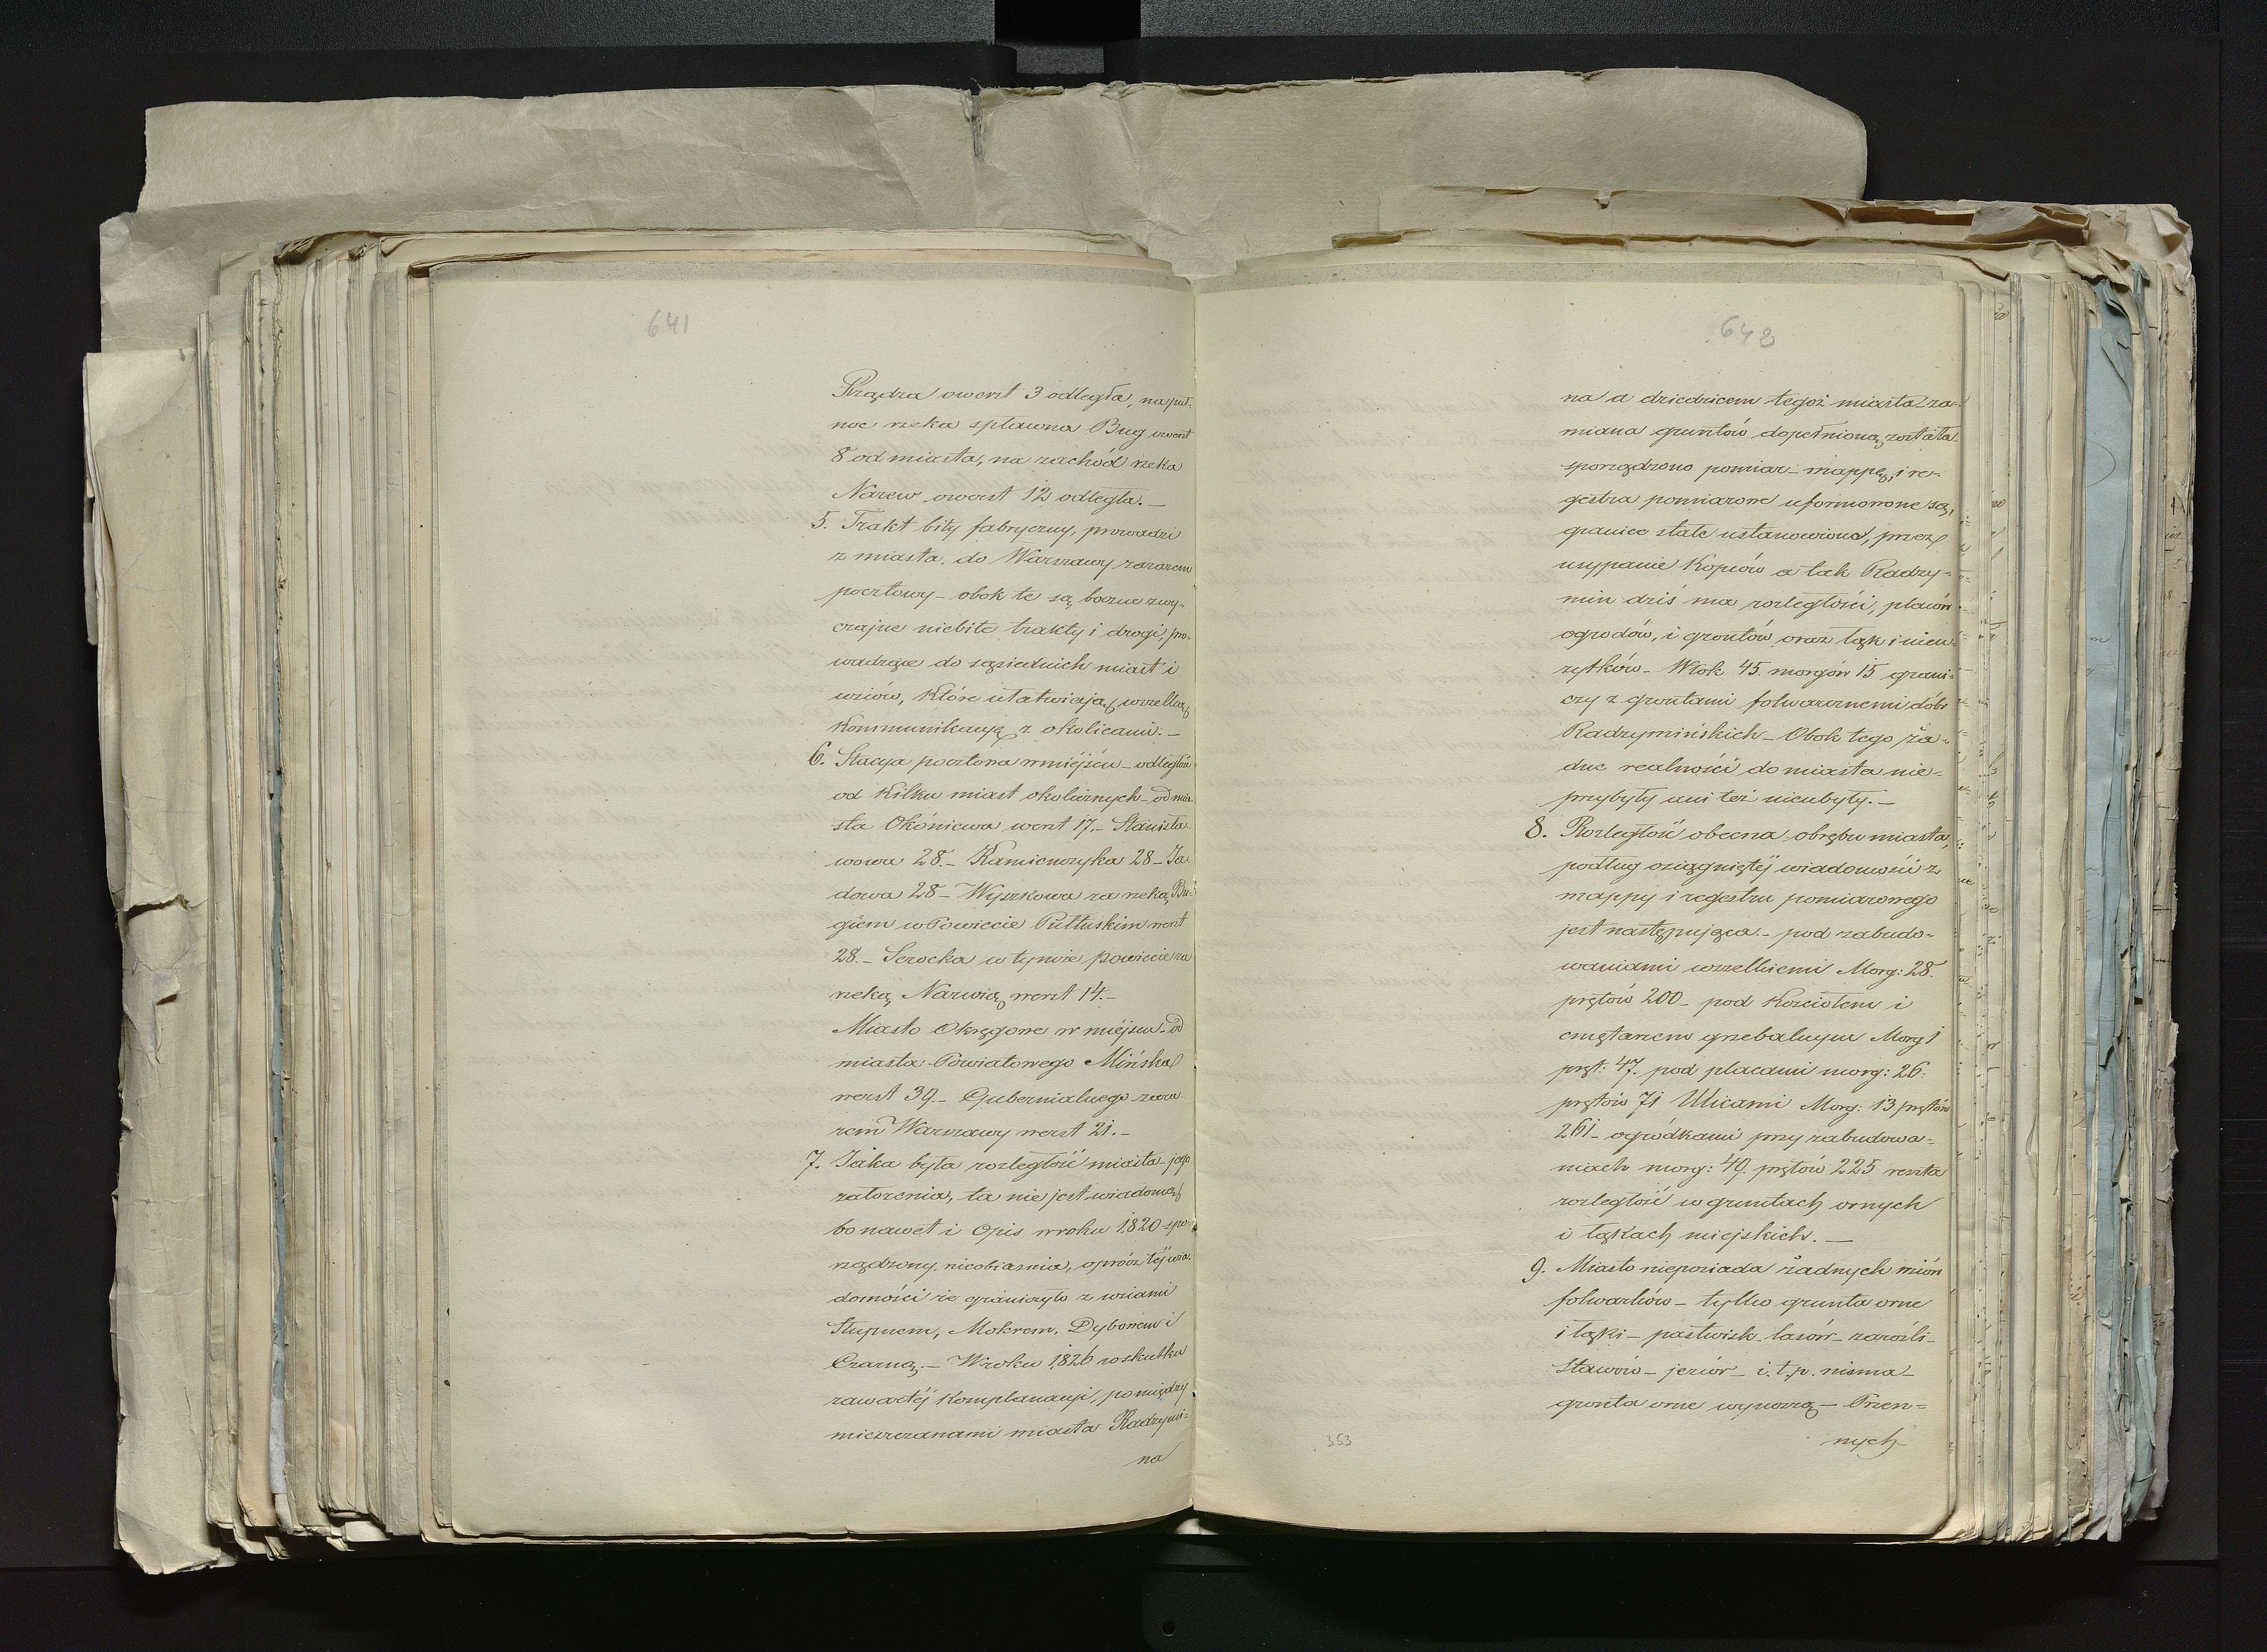 641
Rządza owerst 3 odległa, na puł-
noc rzeka spławna Bug owerst
8 od miasta, na zachód rzeka
Narew owerst 12 odległa. —
5. Trakt bity fabryczny, prowadzi
z miasta, do Warszawy zarazem
pocztowy – obok te są boczne zwy-
czajne niebite trakty i drogi, pro-
wadzące do sąsiednich miast i
wsiów, które ułatwiają wszelką
Kommunikacyą z okolicami. —
6. Stacya pocztowa w miejscu – odległość
od Kilku miast okolicznych – od mia
sta Okóniewa werst 17. – Stanisła
wowa 28. – Kamieńczyka 28 – Ja-
dowa 28 – Wyszkowa za rzeką Bu-
giem w Powiecie Pułtuskim werst
28. – Serocka w tymże powiecie za
rzeką Narwią werst 14. –
Miasto Okręgowe w miejscu – od
miasta Powiatowego Mińska
werst 39. – Gubernialnego zara
zem Warszawy werst 21. –
7. Jaka była rozległość miasta – jego
założenia, ta nie jest wiadomą
bo nawet i Opis wroku 1820 spo-
rządzony, nieobiasnia, oprócz tej wia-
domości że graniczyło z wsiami
Słupnem, Mokrem, Dybowem i
Czarną. – Wroku 1826 wskutku
zawartéj Komplanacyi, pomiędzy
mieszczanami miasta Radzymi-
na
648
na a dziedzicem tegoż miasta za-
miana gruntów dopełnioną została
sporządzono pomiar – mappę, i re-
gestra pomiarowe uformowne są,
graniec stałe ustanowiono, przez
usypanie Kopców a tak Radzy-
min dziś ma rozległości, placów
ogrodów, i grontów oraz łąk i nieu-
żytków – Włók 45. morgów 15 grani-
czy z grontami folwarcznemi dóbr
Radzymińskich – Obok tego ża-
dne realności do miasta nie-
przybyły ani też nieubyły. —
8. Rozległość obecna obrębu miasta,
podług osiągniętéj wiadomości z
mappy i regestru pomiarowego
jest następująca. – pod zabudo-
waniami wszelkiemi Morg: 28.
prętów 200 – pod Kościołem i
cmętarzem grzebalnym Morg 1
pręt: 47. pod placami morg: 26.
prętów 71 Ulicami Morg: 13 prętów
261 – ogródkami przy zabudowa-
niach morg: 49. prętów 225 reszta
rozległość w gruntach ornych
i łąkach miejskich. —
9. Miasto nieposiada żadnych wsiów
folwarków – tylko grunta orne
i łąki – pastwisk – lasów – zarośli –
Stawów – jeziór – i. t. p. niema –
gronta orne wynoszą – Przen-
nych
353